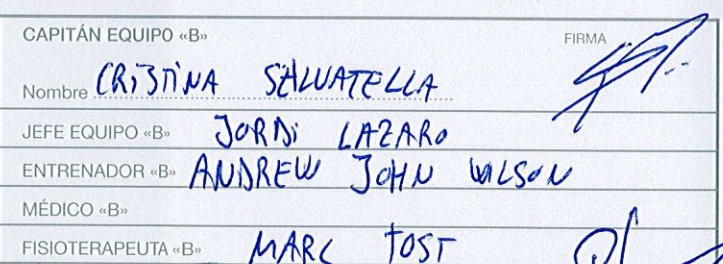 CAPITÁN EQUIPO «B» FIRMA
Nombre CRISTINA SALVATELLA
JEFE EQUIPO «B» JORDI LAZARO
ENTRENADOR «B» ANDREW JOHN WILSON
MÉDICO «B»
FISIOTERAPEUTA «B» MARC TOST